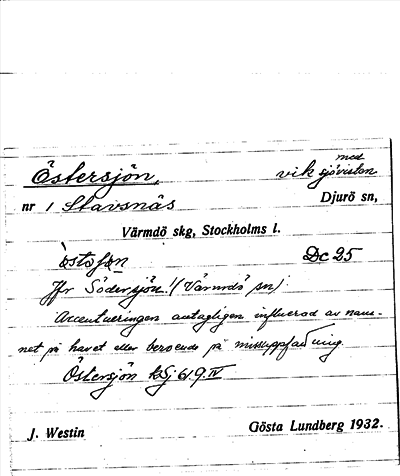 Östersjön, vik med sjövisten
nr 1 Stavsnäs Djurö sn,
Värmdö skg, Stockholms l.
Dc 25
Jfr Södersjön! (Värmdö sn)
Accentueringen antagligen influerad av nam-
net på havet eller beroende på missuppfattning.
Östersjön
J. Westin Gösta Lundberg 1932.